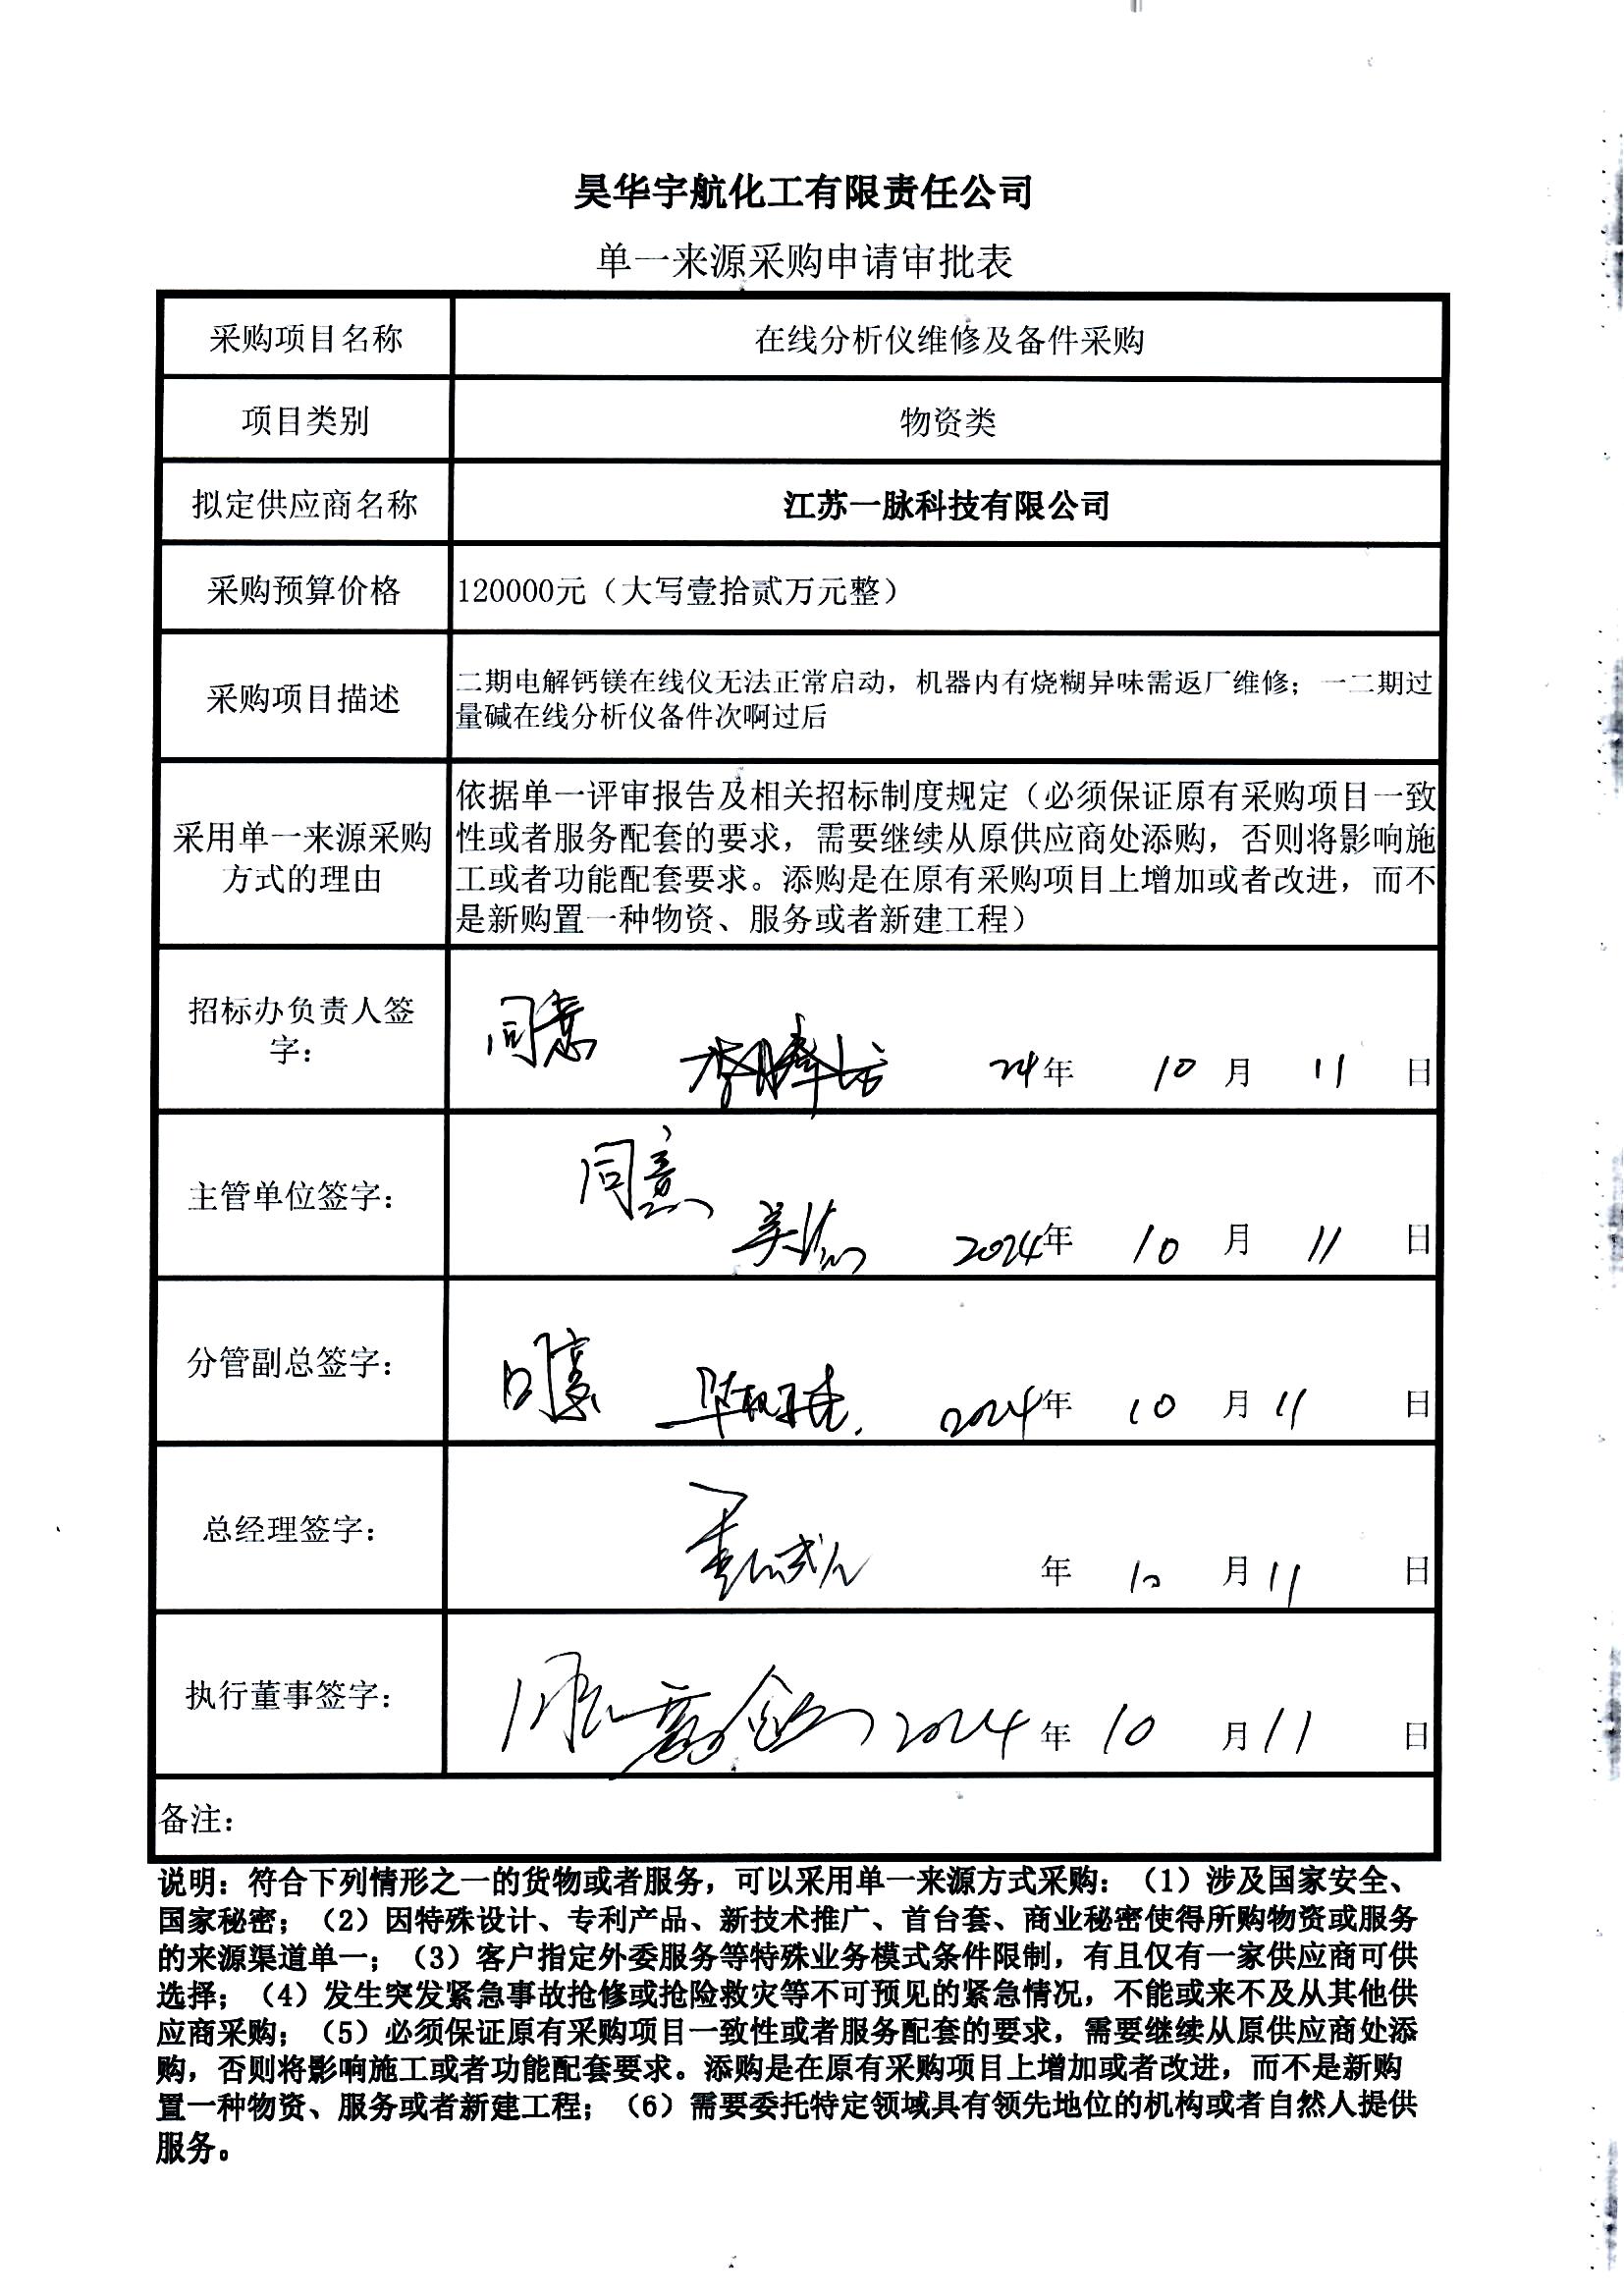 昊华宇航化工有限责任公司
单一来源采购申请审批表
采购项目名称
在线分析仪维修及备件采购
项目类别
物资类
拟定供应商名称
江苏一脉科技有限公司
采购预算价格
120000元（大写壹拾贰万元整）
采购项目描述
二期电解钙镁在线仪无法正常启动，机器内有烧糊异味需返厂维修；一二期过
量碱在线分析仪备件次啊过后
采用单一来源采购
方式的理由
依据单一评审报告及相关招标制度规定（必须保证原有采购项目一致
性或者服务配套的要求，需要继续从原供应商处添购，否则将影响施
工或者功能配套要求。添购是在原有采购项目上增加或者改进，而不
是新购置一种物资、服务或者新建工程）
招标办负责人签
字：
同意
24年 10月 11日
主管单位签字：
同意
2024年 10月 11日
分管副总签字：
同意
2024年 10月 11日
总经理签字：
年 10月 11日
执行董事签字：
2024年 10月 11日
备注：
说明：符合下列情形之一的货物或者服务，可以采用单一来源方式采购：（1）涉及国家安全、
国家秘密；（2）因特殊设计、专利产品、新技术推广、首台套、商业秘密使得所购物资或服务
的来源渠道单一；（3）客户指定外委服务等特殊业务模式条件限制，有且仅有一家供应商可供
选择；（4）发生突发紧急事故抢修或抢险救灾等不可预见的紧急情况，不能或来不及从其他供
应商采购；（5）必须保证原有采购项目一致性或者服务配套的要求，需要继续从原供应商处添
购，否则将影响施工或者功能配套要求。添购是在原有采购项目上增加或者改进，而不是新购
置一种物资、服务或者新建工程；（6）需要委托特定领域具有领先地位的机构或者自然人提供
服务。